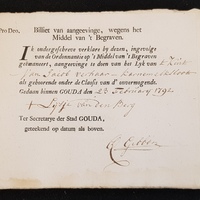 Pro Deo.
Billiet van aangeevinge, wegens het
Middel van 't Begraven.
Ik ondergeschreve verklare by dezen, ingevolge
van de Ordonnantie op 't Middel van 't Begraven
geëmaneert, aangevinge te doen van het Lyk van 't Kint
van Jacob
als gehoorende onder de Classis van d' onvermogende.
Gedaan binnen GOUDA, den 23 February 1792
van den Berg
Ter Secretarye der Stad GOUDA,
geteekend op datum als boven.